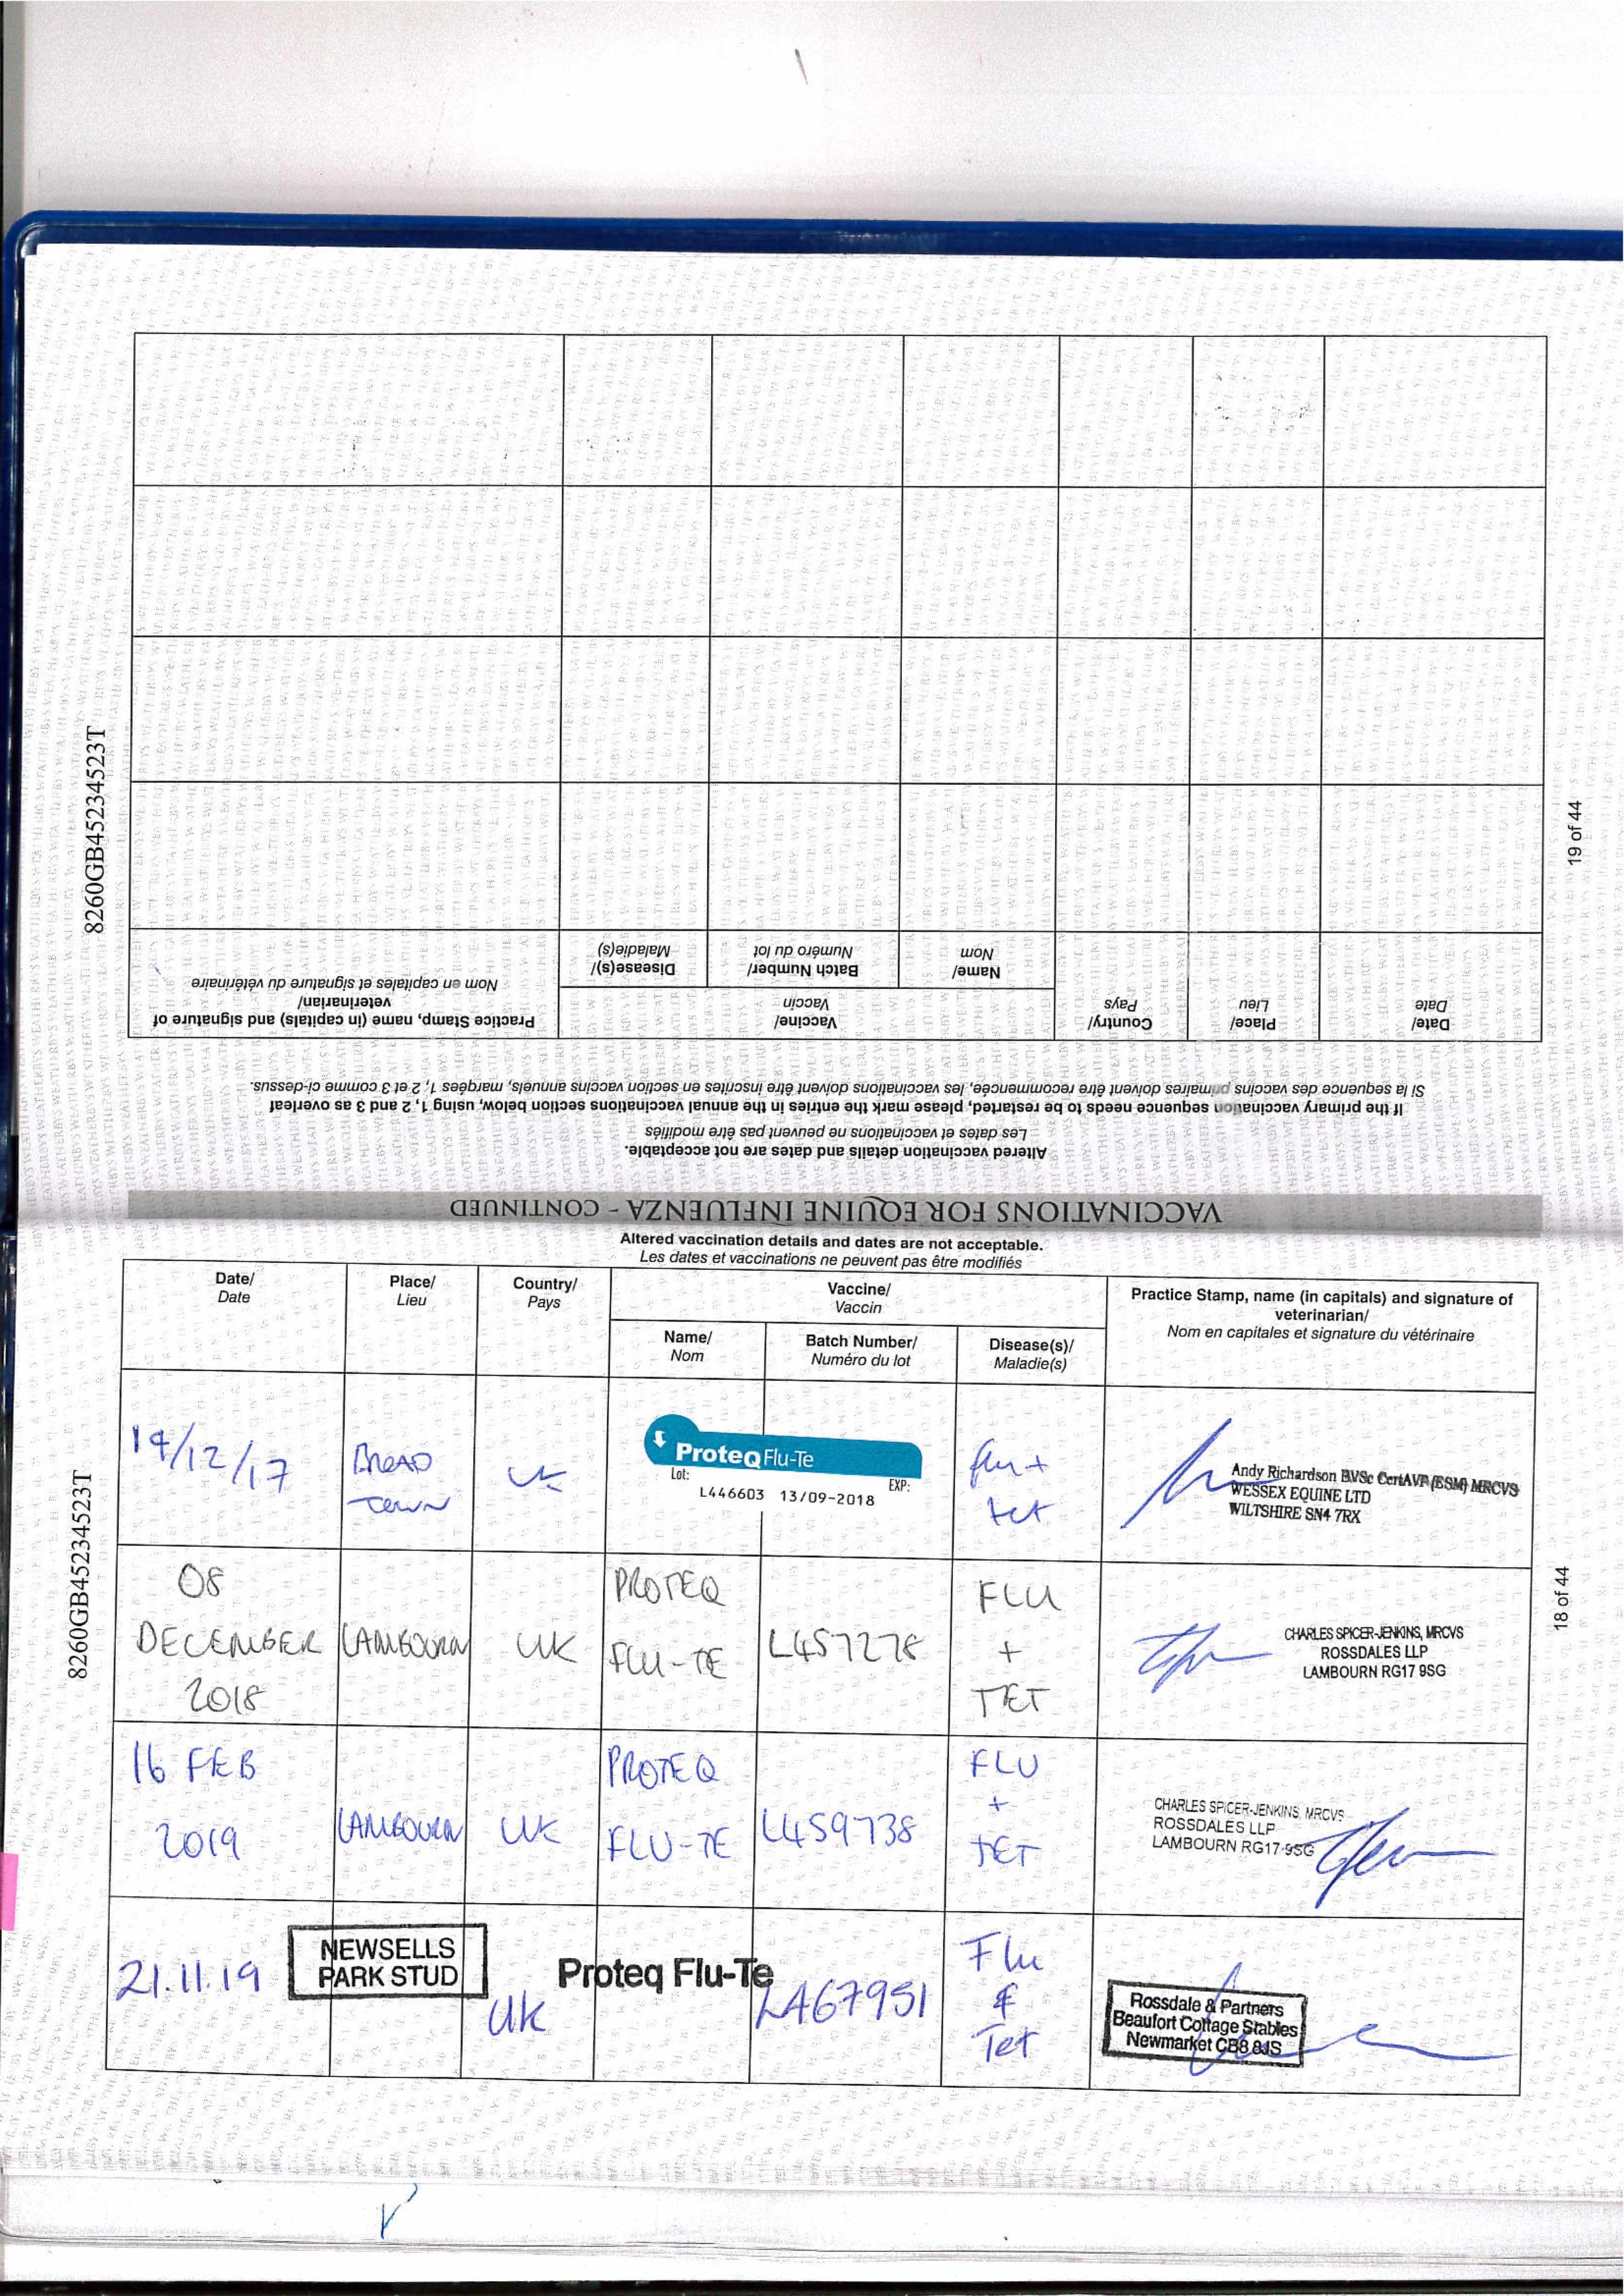 8260GB45234523T
19 of 44
Practice Stamp, name (in capitals) and signature of
veterinarian/
Nom en capitales et signature du vétérinaire
Vaccine/
Vaccin
Disease(s)/
Maladie(s)
Batch Number/
Numéro du lot
Name/
Nom
Country/
Pays
Place/
Lieu
Date/
Date
Si la sequence des vaccins primaires doivent être recommencée, les vaccinations doivent être inscrites en section vaccins annuels, margées 1, 2 et 3 comme ci-dessus.
If the primary vaccination sequence needs to be restarted, please mark the entries in the annual vaccinations section below, using 1, 2 and 3 as overleaf
Les dates et vaccinations ne peuvent pas être modifiés
Altered vaccination details and dates are not acceptable.
VACCINATIONS FOR EQUINE INFLUENZA - CONTINUED
Altered vaccination details and dates are not acceptable.
Les dates et vaccinations ne peuvent pas être modifiés
Date/
Date
Place/
Lieu
Country/
Pays
Vaccine/
Vaccin
Name/
Nom
Batch Number/
Numéro du lot
Disease(s)/
Maladie(s)
Practice Stamp, name (in capitals) and signature of
veterinarian/
Nom en capitales et signature du vétérinaire
8260GB452345523T
18 of 44
/12/17
BROAD
TOWN
UK
ProteqFlu-Te
Lot:
EXP:
L446603 13/09-2018
flu +
tet
Andy Richardson BVSc CertAVP(ESM) MRCVS
WESSEX EQUINE LTD
WILTSHIRE SN4 7RX
08
DECEMBER
2018
LAMBOURN
UK
PROTEQ
FLU-TE
L457278
FLU
+
TET
CHARLES SPICER-JENKINS, MRCVS
ROSSDALES LLP
LAMBOURN RG17 9SG
16 FEB
2019
LAMBOURN
UK
PROTEQ
FLU-TE
L459738
FLU
+
TET
CHARLES SPICER-JENKINS, MRCVS
ROSSDALES LLP
LAMBOURN RG17 9SG
21.11.19
NEWSELLS
PARK STUD
UK
Proteq Flu-Te
LA67951
Flu
&
Tet
Rossdale & Partners
Beaufort Cottage Stables
Newmarket CB8 8JS